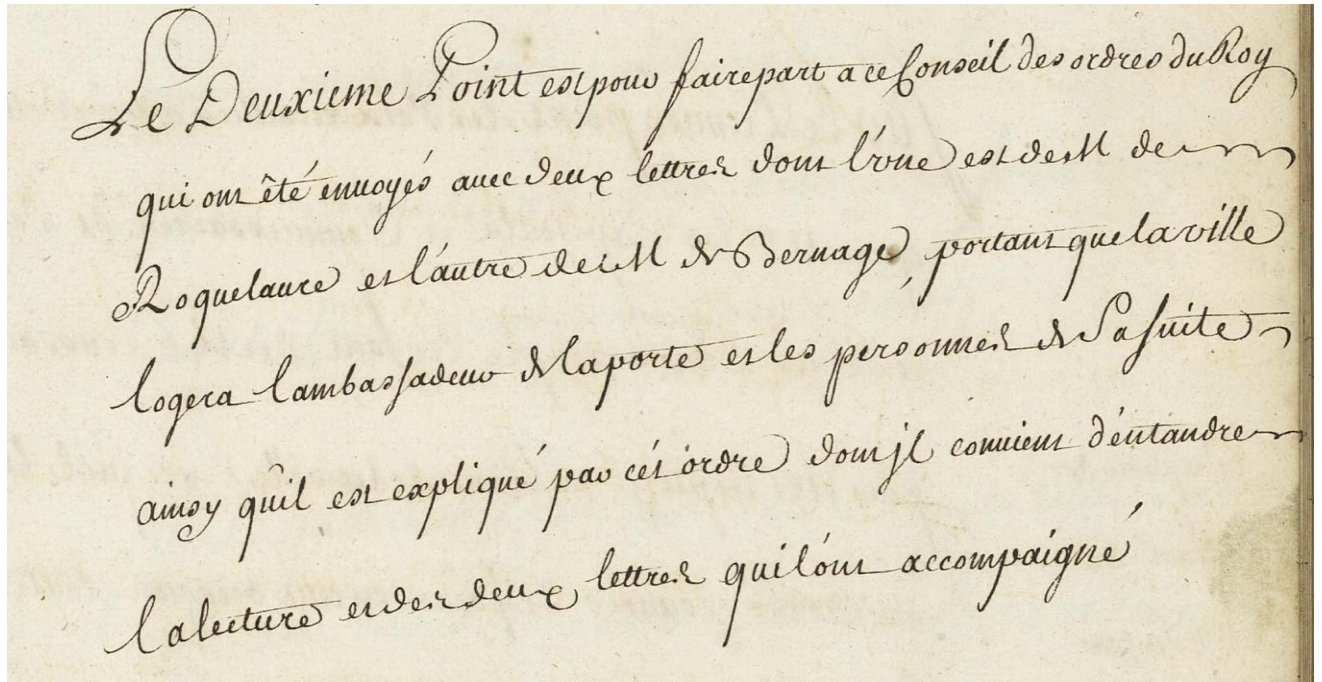 Le Deuxieme Point est pour faire part a ce Conseil des ordres du Roy
qui ont êté enuoyés auec deux lettres dont l'vne est de M de
Roquelaure et lautre de M de Bernage, portant que la ville
logera lambassadeur de la porte et les personnes de Sa suite
ainsy quîl est expliqué par cét ordre dont jl conuient d'éntandre
la lecture et des deux lettres qui lónt accompaigné